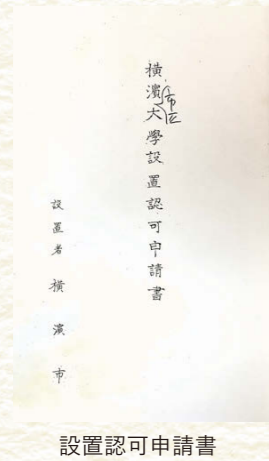 横濱市立大學設置認可申請書
設置者 横濱市
設置認可申請書